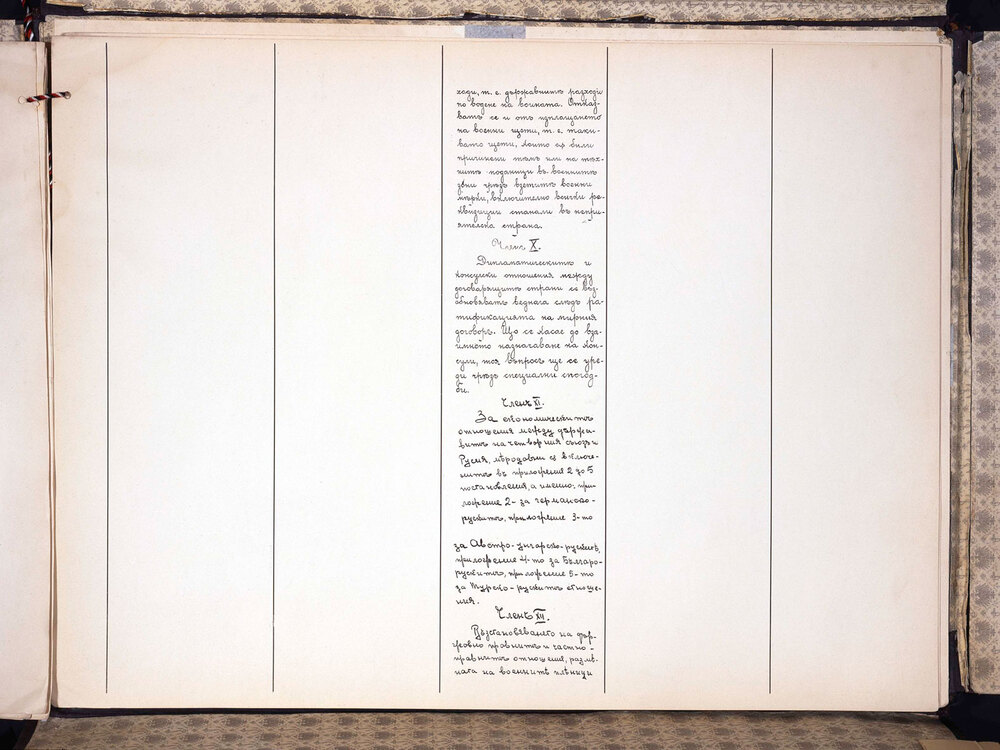 ходи, т. е. държавнитѣ разходи
по водене на войната. Отказ-
ватъ се и отъ изплащането
на военни щети, т. е. таки-
вато щети, които сѫ били
причинени тѣмъ или на тѣх-
нитѣ поданици въ военнитѣ
зони чрѣзъ взетитѣ военни
мѣрки, включително всички ре-
квизиции станали въ непри-
ятелска страна.
Членъ X.
Дипламатическитѣ и
консулски отношения между
договарящитѣ страни се въз-
обновяватъ веднага слѣдъ ра-
тификацията на мирния
договоръ. Що се касае до вза-
имното назначаване на кон-
сули, тоя въпросъ ще се уре-
ди чрѣзъ специални спогод-
би.
Членъ XI.
За економическитѣ
отношения между държа-
витѣ на четворния съюзъ и
Русия, мѣродавни сѫ включе-
нитѣ въ приложения 2 до 5
постановления, а именно, при-
ложение 2- за германско-
рускитѣ, приложение 3-то
за Австро-унгарско-рускитѣ,
приложение 4-то за Българо-
рускитѣ, приложение 5-то
за Турско-рускитѣ отноше-
ния.
Членъ XII.
Възстановяването на
правнитѣ и частно-
правнитѣ отношения, размѣ-
ната на военнитѣ плѣнници